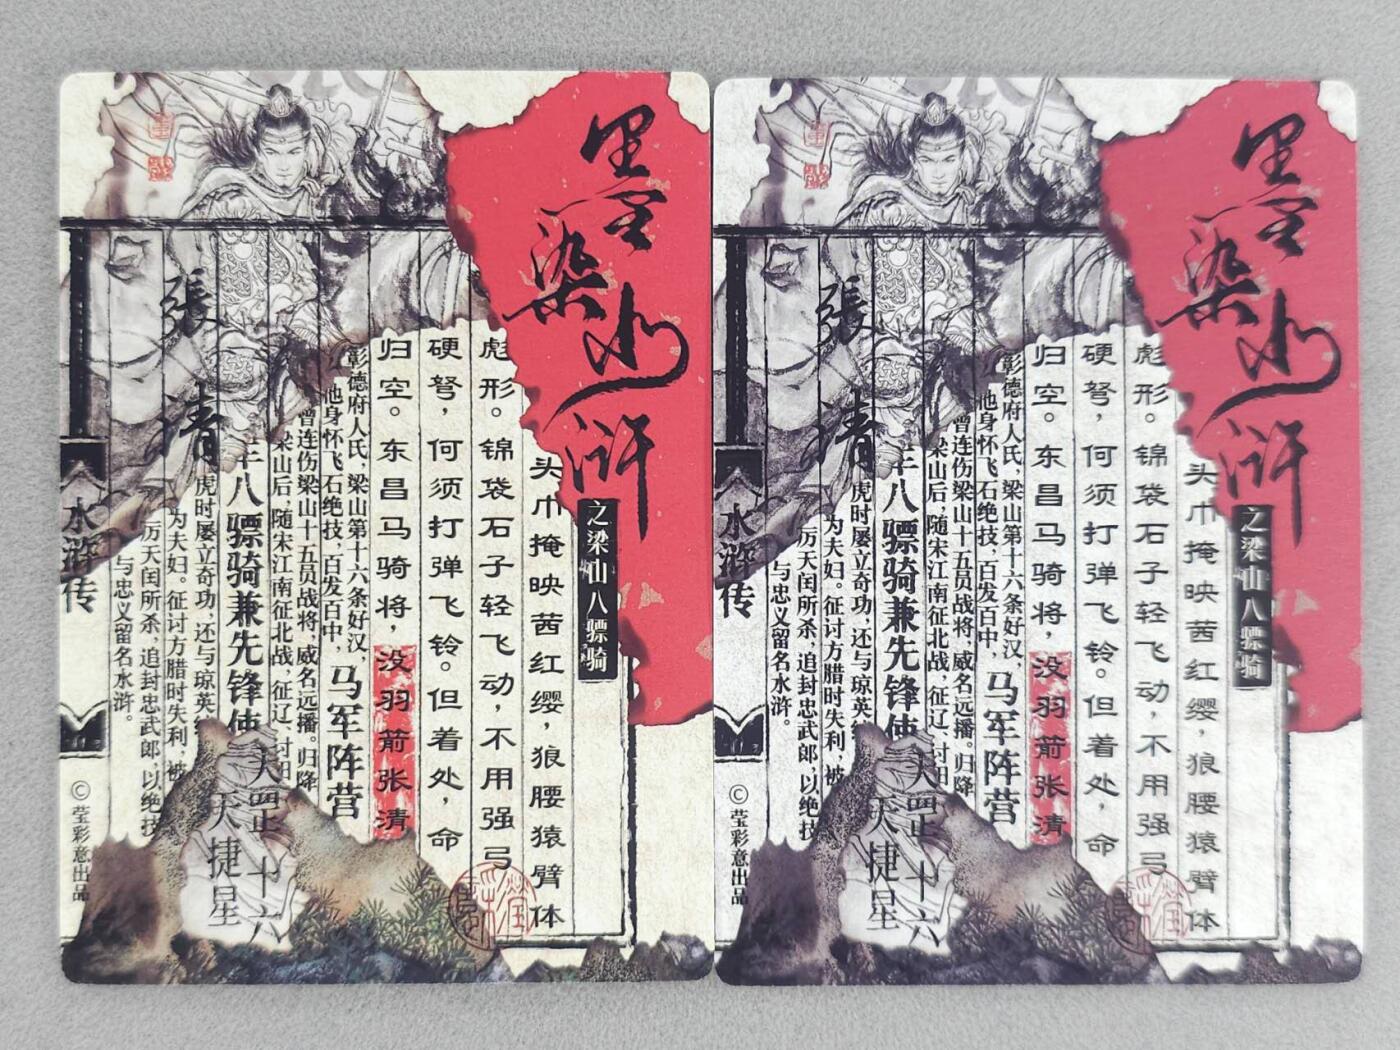 墨染水浒
之梁山八骠骑
头巾掩映茜红缨，狼腰猿臂体
彪形。锦袋石子轻飞动，不用强弓
硬弩，何须打弹飞铃。但着处，命
归空。东昌马骑将，没羽箭张清
彰德府人氏，梁山第十六条好汉，马军阵营
他身怀飞石绝技，百发百中，
曾连伤梁山十五员战将，威名远播。归降
梁山后，随宋江南征北战，征辽、讨田
八骠骑兼先锋使
虎时屡立奇功，还与琼英
为夫妇。征讨方腊时失利，被
厉天闰所杀，追封忠武郎，以绝技
与忠义留名水浒。
張清
天罡十六
天捷星
水浒传
©莹彩意出品
墨染水浒
之梁山八骠骑
头巾掩映茜红缨，狼腰猿臂体
彪形。锦袋石子轻飞动，不用强弓
硬弩，何须打弹飞铃。但着处，命
归空。东昌马骑将，没羽箭张清
彰德府人氏，梁山第十六条好汉，马军阵营
他身怀飞石绝技，百发百中，
曾连伤梁山十五员战将，威名远播。归降
梁山后，随宋江南征北战，征辽、讨田
八骠骑兼先锋使
虎时屡立奇功，还与琼英
为夫妇。征讨方腊时失利，被
厉天闰所杀，追封忠武郎，以绝技
与忠义留名水浒。
張清
天罡十六
天捷星
水浒传
©莹彩意出品